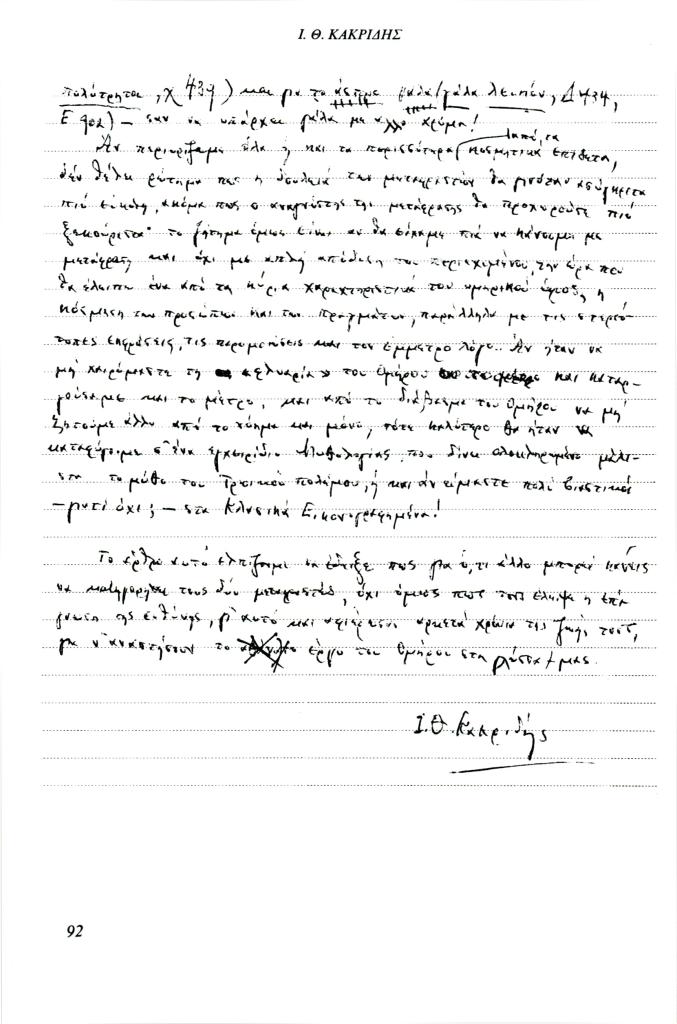 Ι. Θ. ΚΑΚΡΙΔΗΣ
πολύτρητοι, χ 439) και για το άσπρο γάλα (γάλα λευκόν, Δ 434,
Ε 902) – σαν να υπάρχει γάλα με άλλο χρώμα!
Αν περιορίζαμε όλα ή και τα περισσότερα από τα κοσμητικά επίθετα,
δέν θέλει ρώτημα πως η δουλειά των μεταφραστών θα γινόταν ασύγκριτα
πιό εύκολη, ακόμα πως ο αναγνώστης της μετάφρασης θα προχωρούσε πιό
ξεκούραστα· το ζήτημα όμως είναι αν θα είχαμε πιά να κάνουμε με
μετάφραση και όχι με απλή απόδοση του περιεχομένου, την ώρα που
θα έλειπε ένα από τα κύρια χαρακτηριστικά του ομηρικού έπους, η
κόσμηση των προσώπων και των πραγμάτων, παράλληλα με τις στερεό-
τυπες εκφράσεις, τις παρομοιώσεις και τον έμμετρο λόγο. Αν ήταν να
μή χαιρόμαστε τη «φλυαρία» του Ομήρου και καταρ-
γούσαμε και το μέτρο, και από το διάβασμα του Ομήρου να μή
ζητούμε άλλο από το νόημα και μόνο, τότε καλύτερα θα ήταν να
καταφύγουμε σ' ένα εγχειρίδιο Μυθολογίας, που δίνει ολοκληρωμένο μάλι-
στα το μύθο του Τρωικού πολέμου, ή και άν είμαστε πολύ βιαστικοί
– γιατί όχι; – στα Κλασικά Εικονογραφημένα!
Το άρθρο αυτό ελπίζουμε να έδειξε πως για ό,τι άλλο μπορεί κανείς
να κατηγορήσει τους δύο μεταφραστές, όχι όμως πως τους έλειψε η επί-
γνωση της ευθύνης, γι' αυτό και αφιέρωσαν αρκετά χρόνια της ζωής τους,
για ν' αναστήσουν το έργο του Ομήρου στη γλώσσα μας.
Ι. Θ. Κακριδής
92